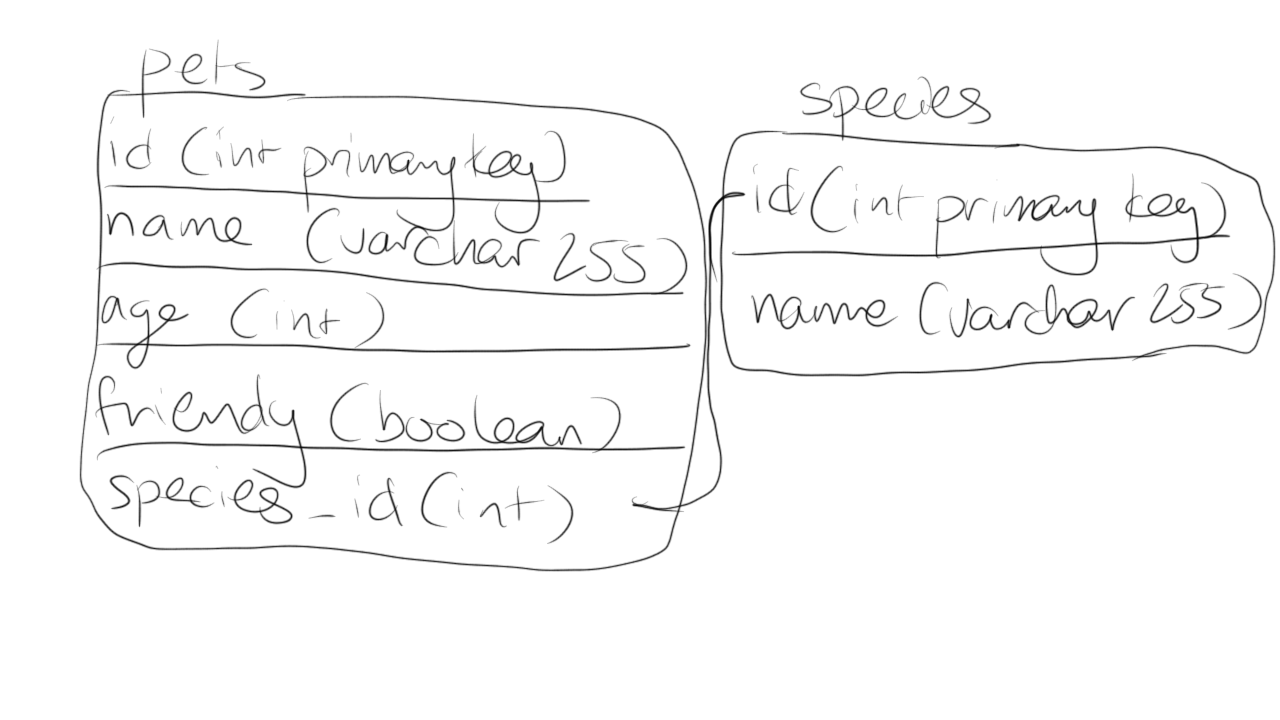 pets
id (int primary key)
name (varchar 255)
age (int)
friendy (boolean)
species_id (int)
species
id (int primary key)
name (varchar 255)